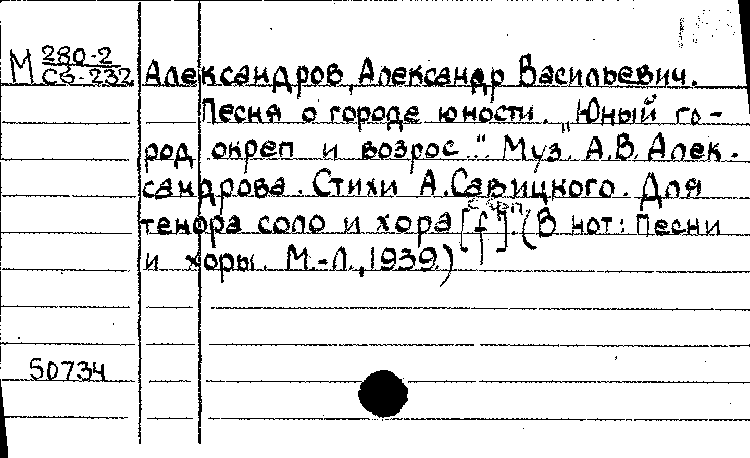 М 280-2
Сб-232
Александров, Александр Васильевич.
Песня о городе юности. „Юный го-
род окреп и возрос..." Муз. А.В. Алек-
сандрова. Стихи А. Савицкого. Для
тенора соло и хора [f]. (В нот: Песни
и хоры. М.-Л., 1939.)
50734